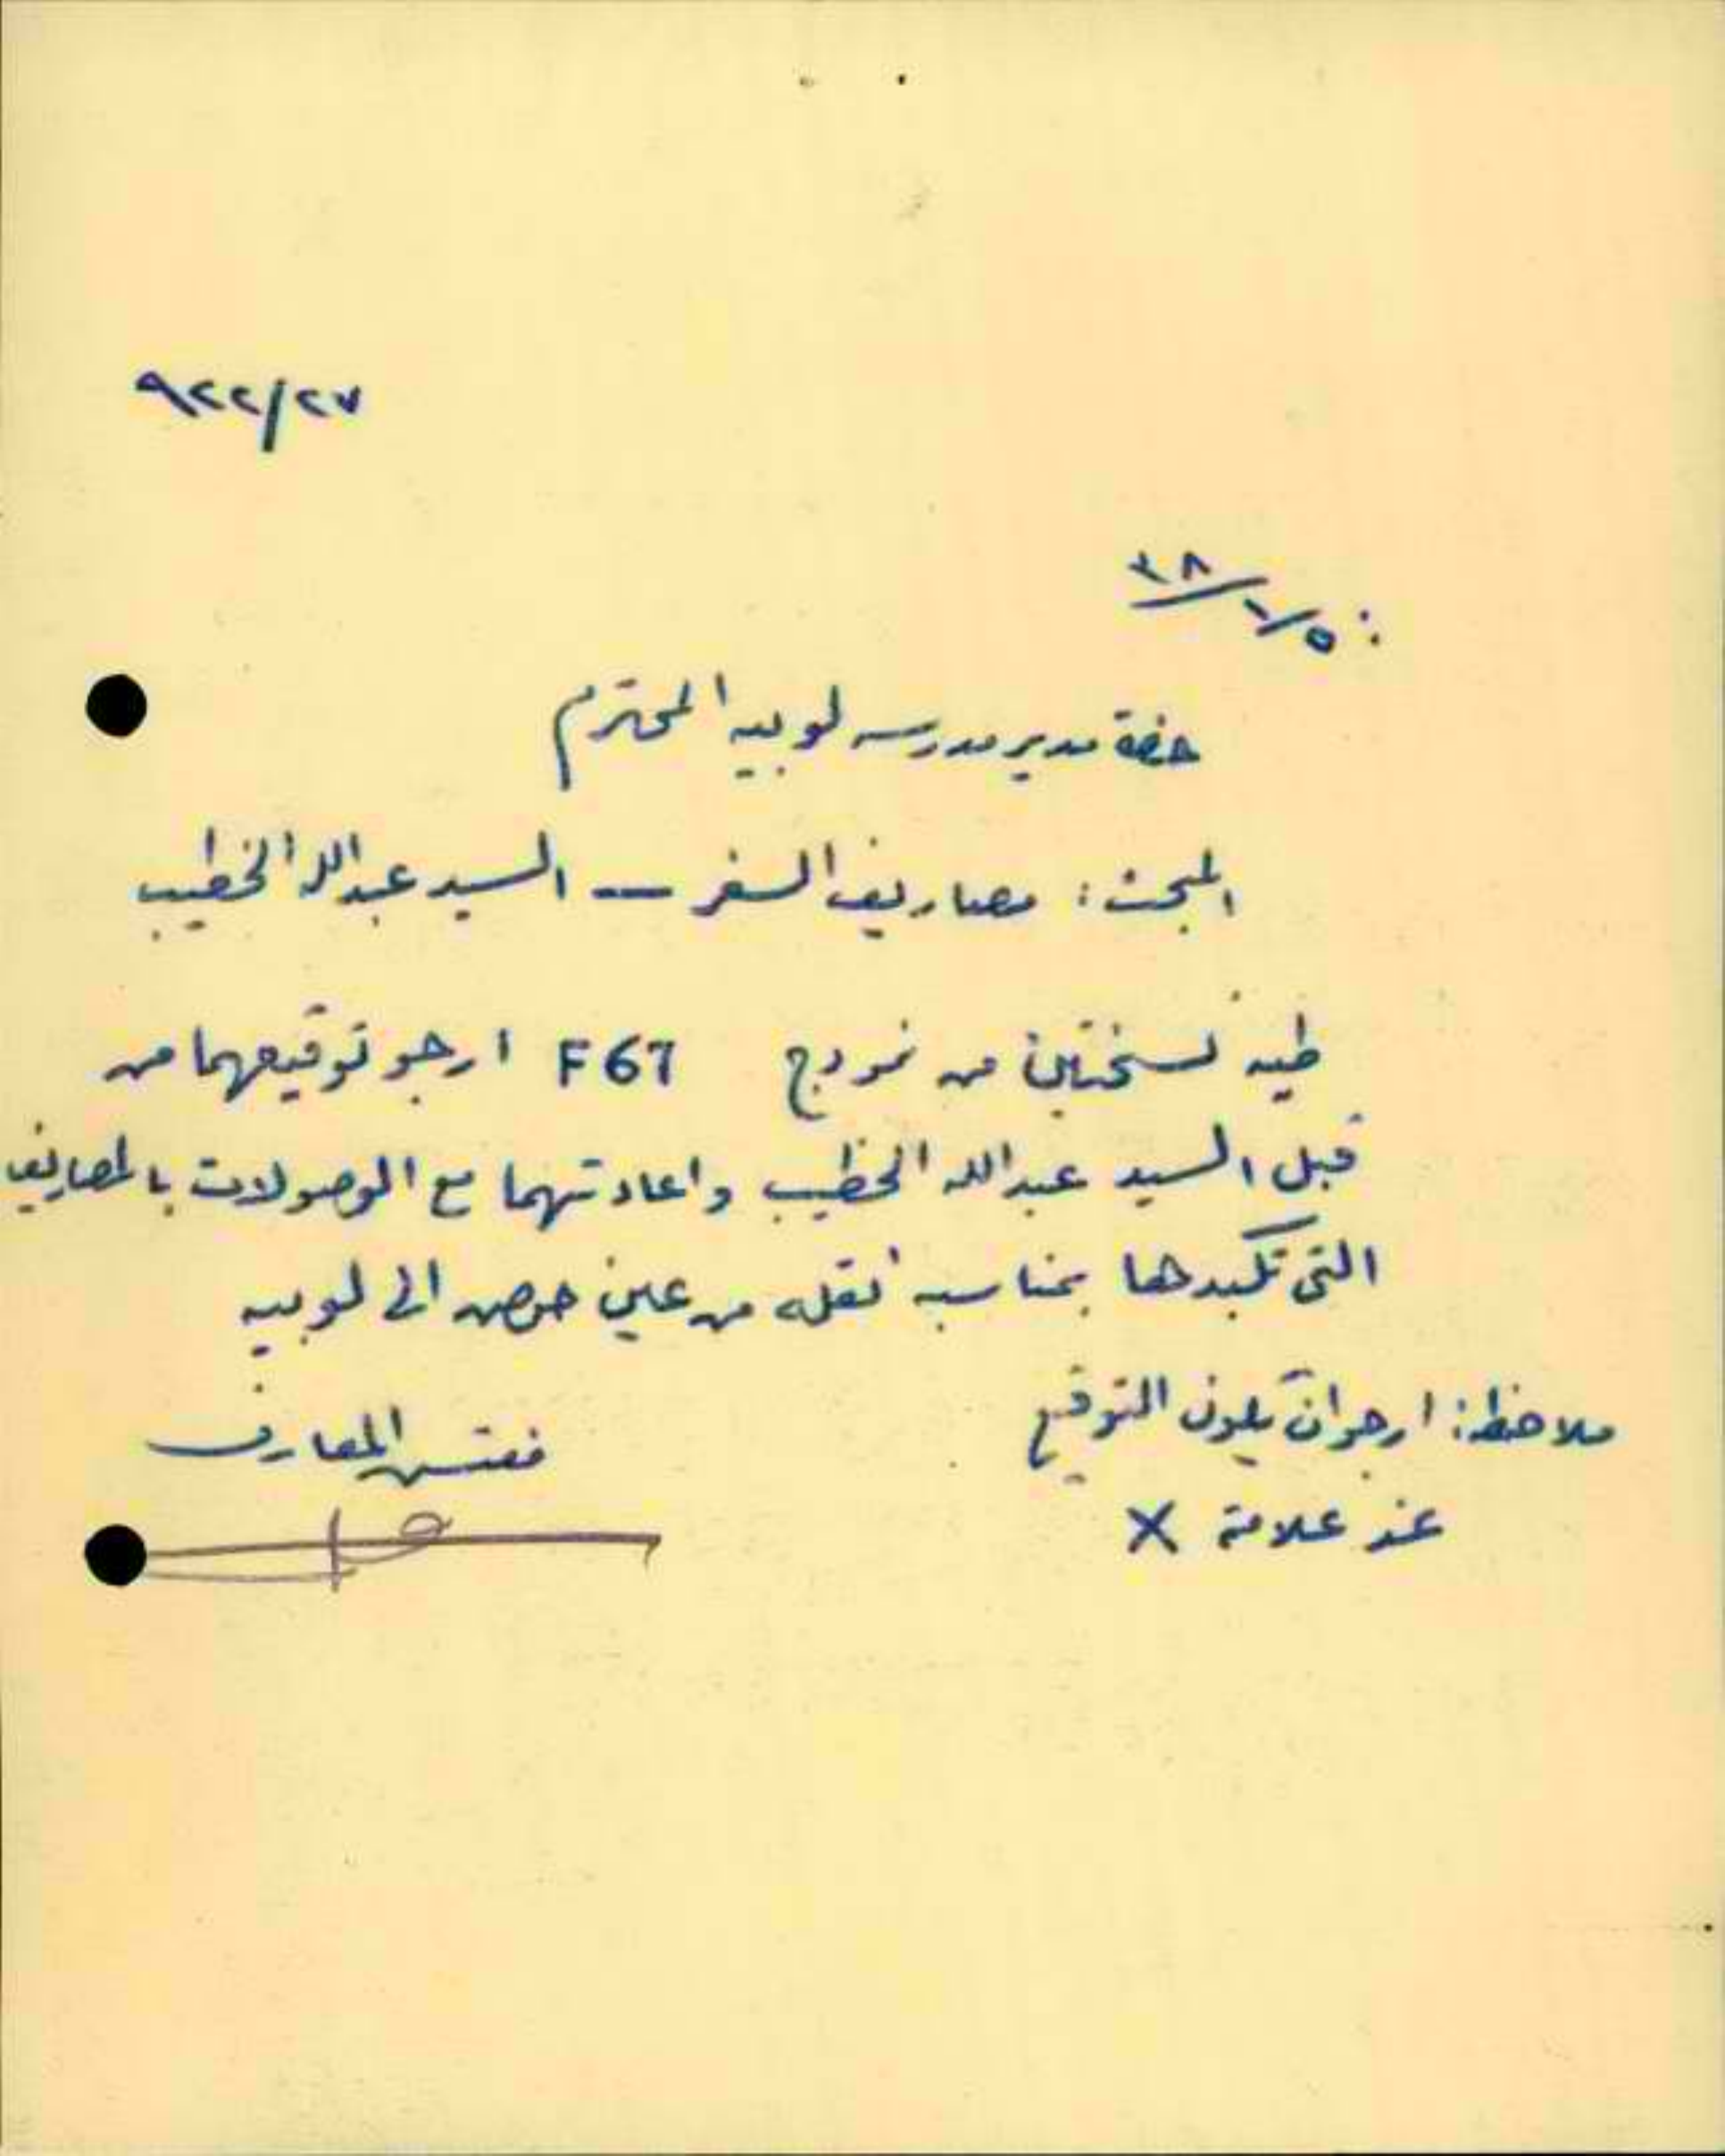 ٩٢٢/٢٧
٥/١٠/٣٨
حضرة مدير مدرسه لوبيه المحترم
المبحث: مصاريف السفر — السيد عبدالله الخطيب
طيه نسختين من نموذج F 67 ارجو توقيعهما من
قبل السيد عبدالله الخطيب واعادتهما مع الوصولات بالمصاريف
التي تكبدها بمناسبه نقله من عين حوض الى لوبيه
ملاحظة: ارجو ان يكون التوقيع
عند علامة X
مفتش المعارف